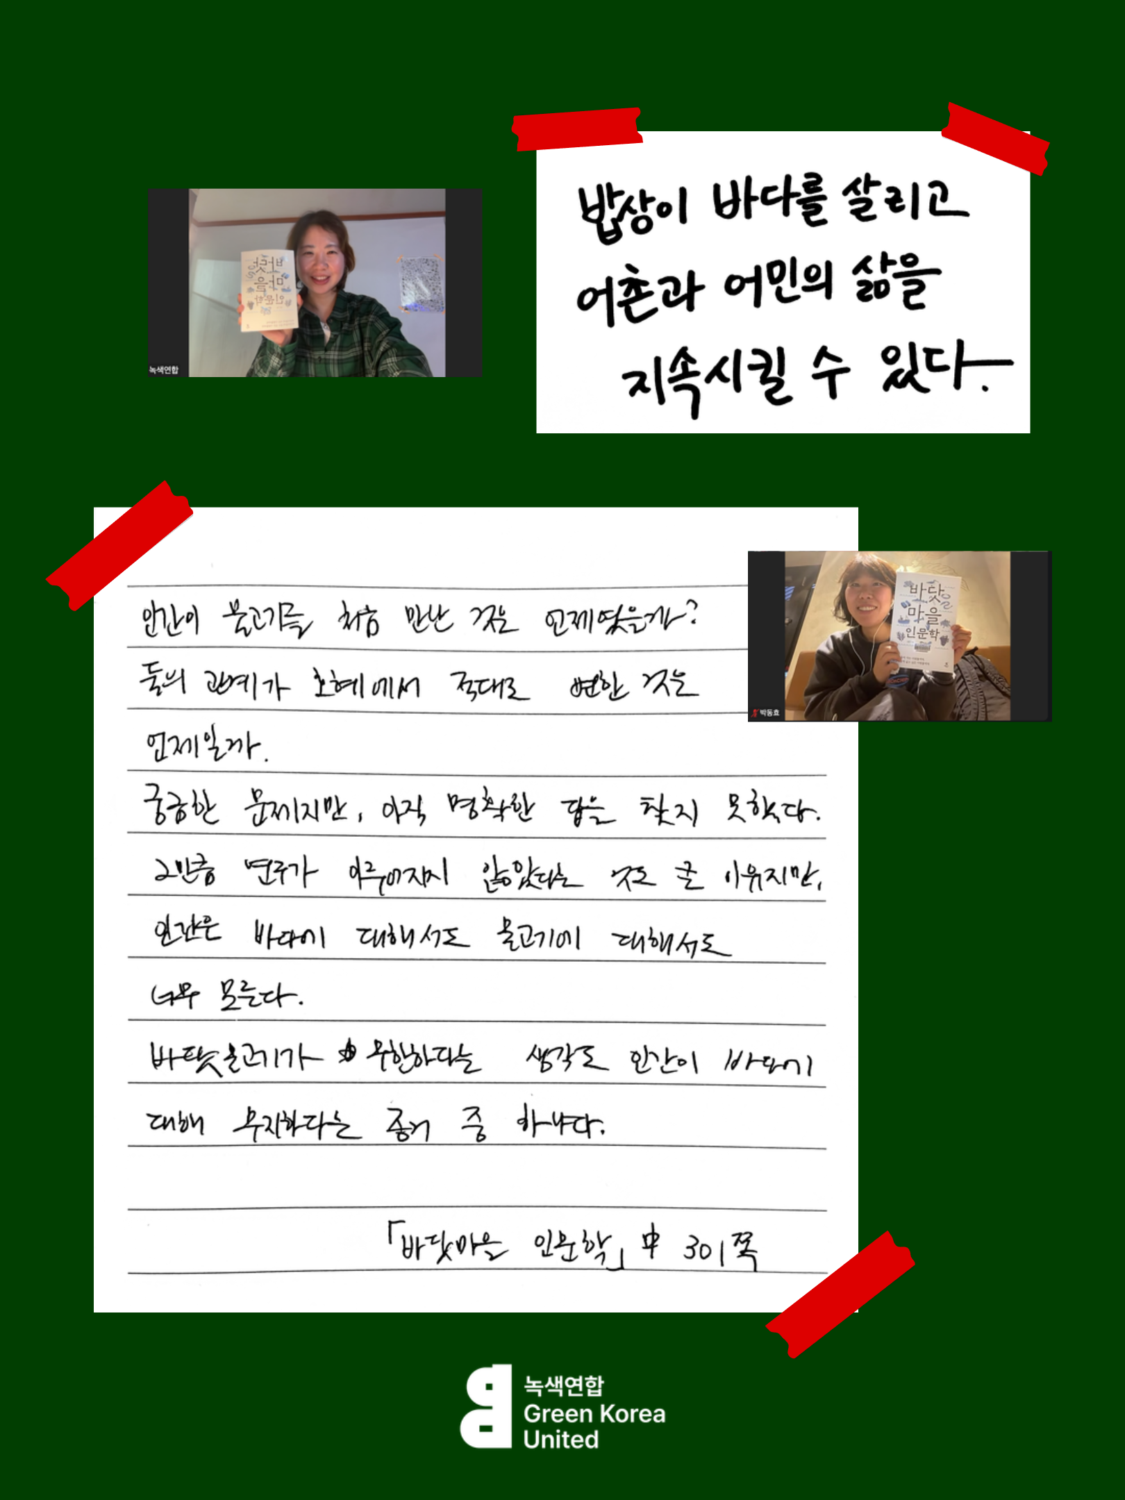 밥상이 바다를 살리고
어촌과 어민의 삶을
지속시킬 수 있다.
바닷
마을
인문학
녹색연합
인간이 물고기를 처음 만난 것은 언제였을까?
둘의 관계가 호혜에서 적대로 변한 것은
언제일까.
궁금한 문제지만, 아직 명확한 답을 찾지 못했다.
그만큼 연구가 이루어지지 않았다는 것도 큰 이유지만,
인간은 바다에 대해서도 물고기에 대해서도
너무 모른다.
바닷물고기가 무한하다는 생각도 인간이 바다에
대해 무지하다는 증거 중 하나다.
「바닷마을 인문학」 中 301쪽
바닷
마을
인문학
박동효
녹색연합
Green Korea
United